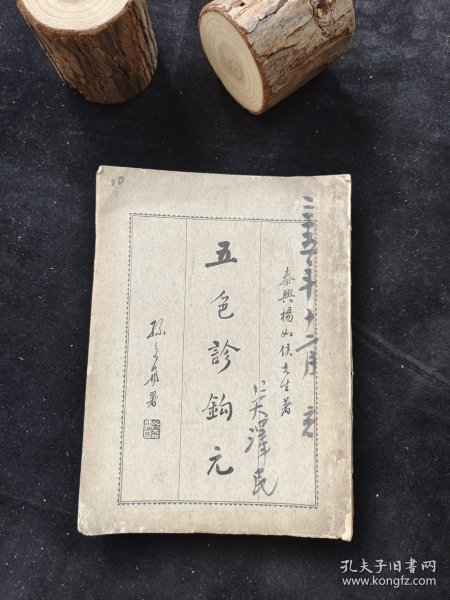 三十五年十二月
泰興楊如侯先生著
吴澤民
五色診鈎元
署
30
孔夫子旧书网
www.kongfz.com